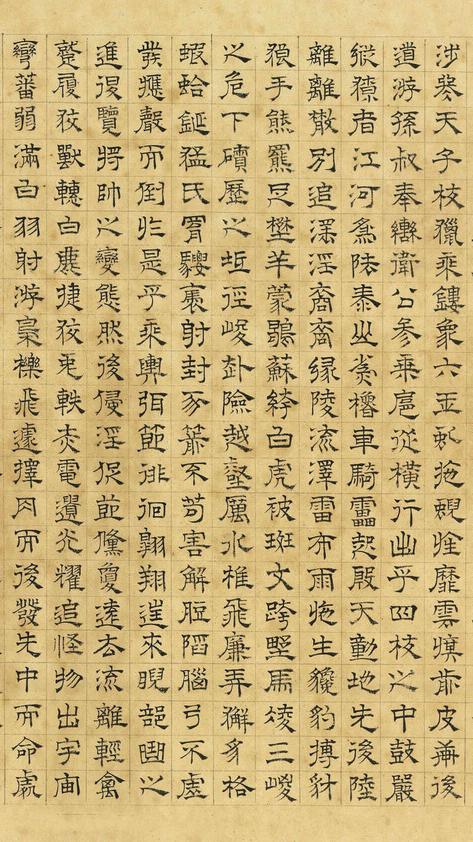 涉冬天子校獵乘鏤象六玉虬拖蜺旌靡雲旗前皮軒後
道游孫叔奉轡衛公參乘扈從橫行出乎四校之中鼓嚴
縱獠者江河為阹泰山為櫓車騎靁起殷天動地先後陸
離離散別追淫淫裔裔緣陵流澤雷布雨施生貔豹搏豺
狼手熊羆足壄羊蒙鶡蘇絝白虎被斑文跨壄馬凌三嵕
之危下磧歷之坻徑峻赴險越壑厲水椎飛廉弄獬豸格
蝦蛤鋋猛氏羂騕褭射封豕箭不苟害解脰陷腦弓不虛
發應聲而倒於是乎乘輿弭節徘徊翱翔往來睨部曲之
進退覽將帥之變態然後侵淫促節儵夐遠去流離輕禽
蹵履狡獸轊白鹿捷狡兔軼赤電遺光耀追怪物出宇宙
彎蕃弱滿白羽射游梟櫟飛遽擇肉而後發先中而命處